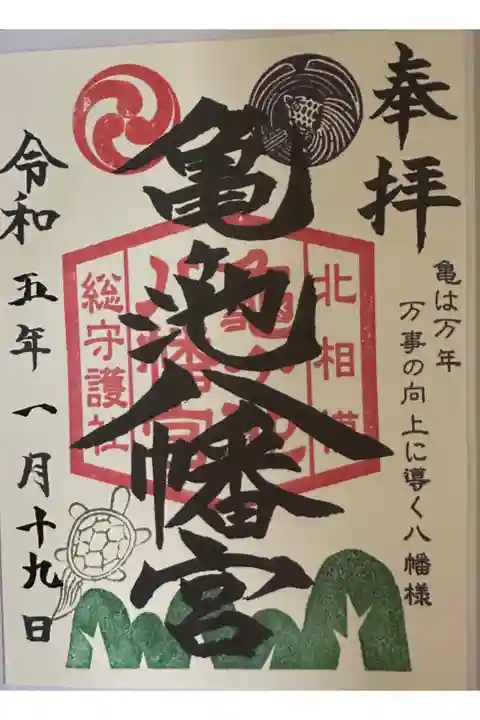 奉拝
亀は万年
万事の向上に導く八幡様
亀池八幡宮
北相模
亀の池
八幡宮
総守護社
令和五年一月十九日